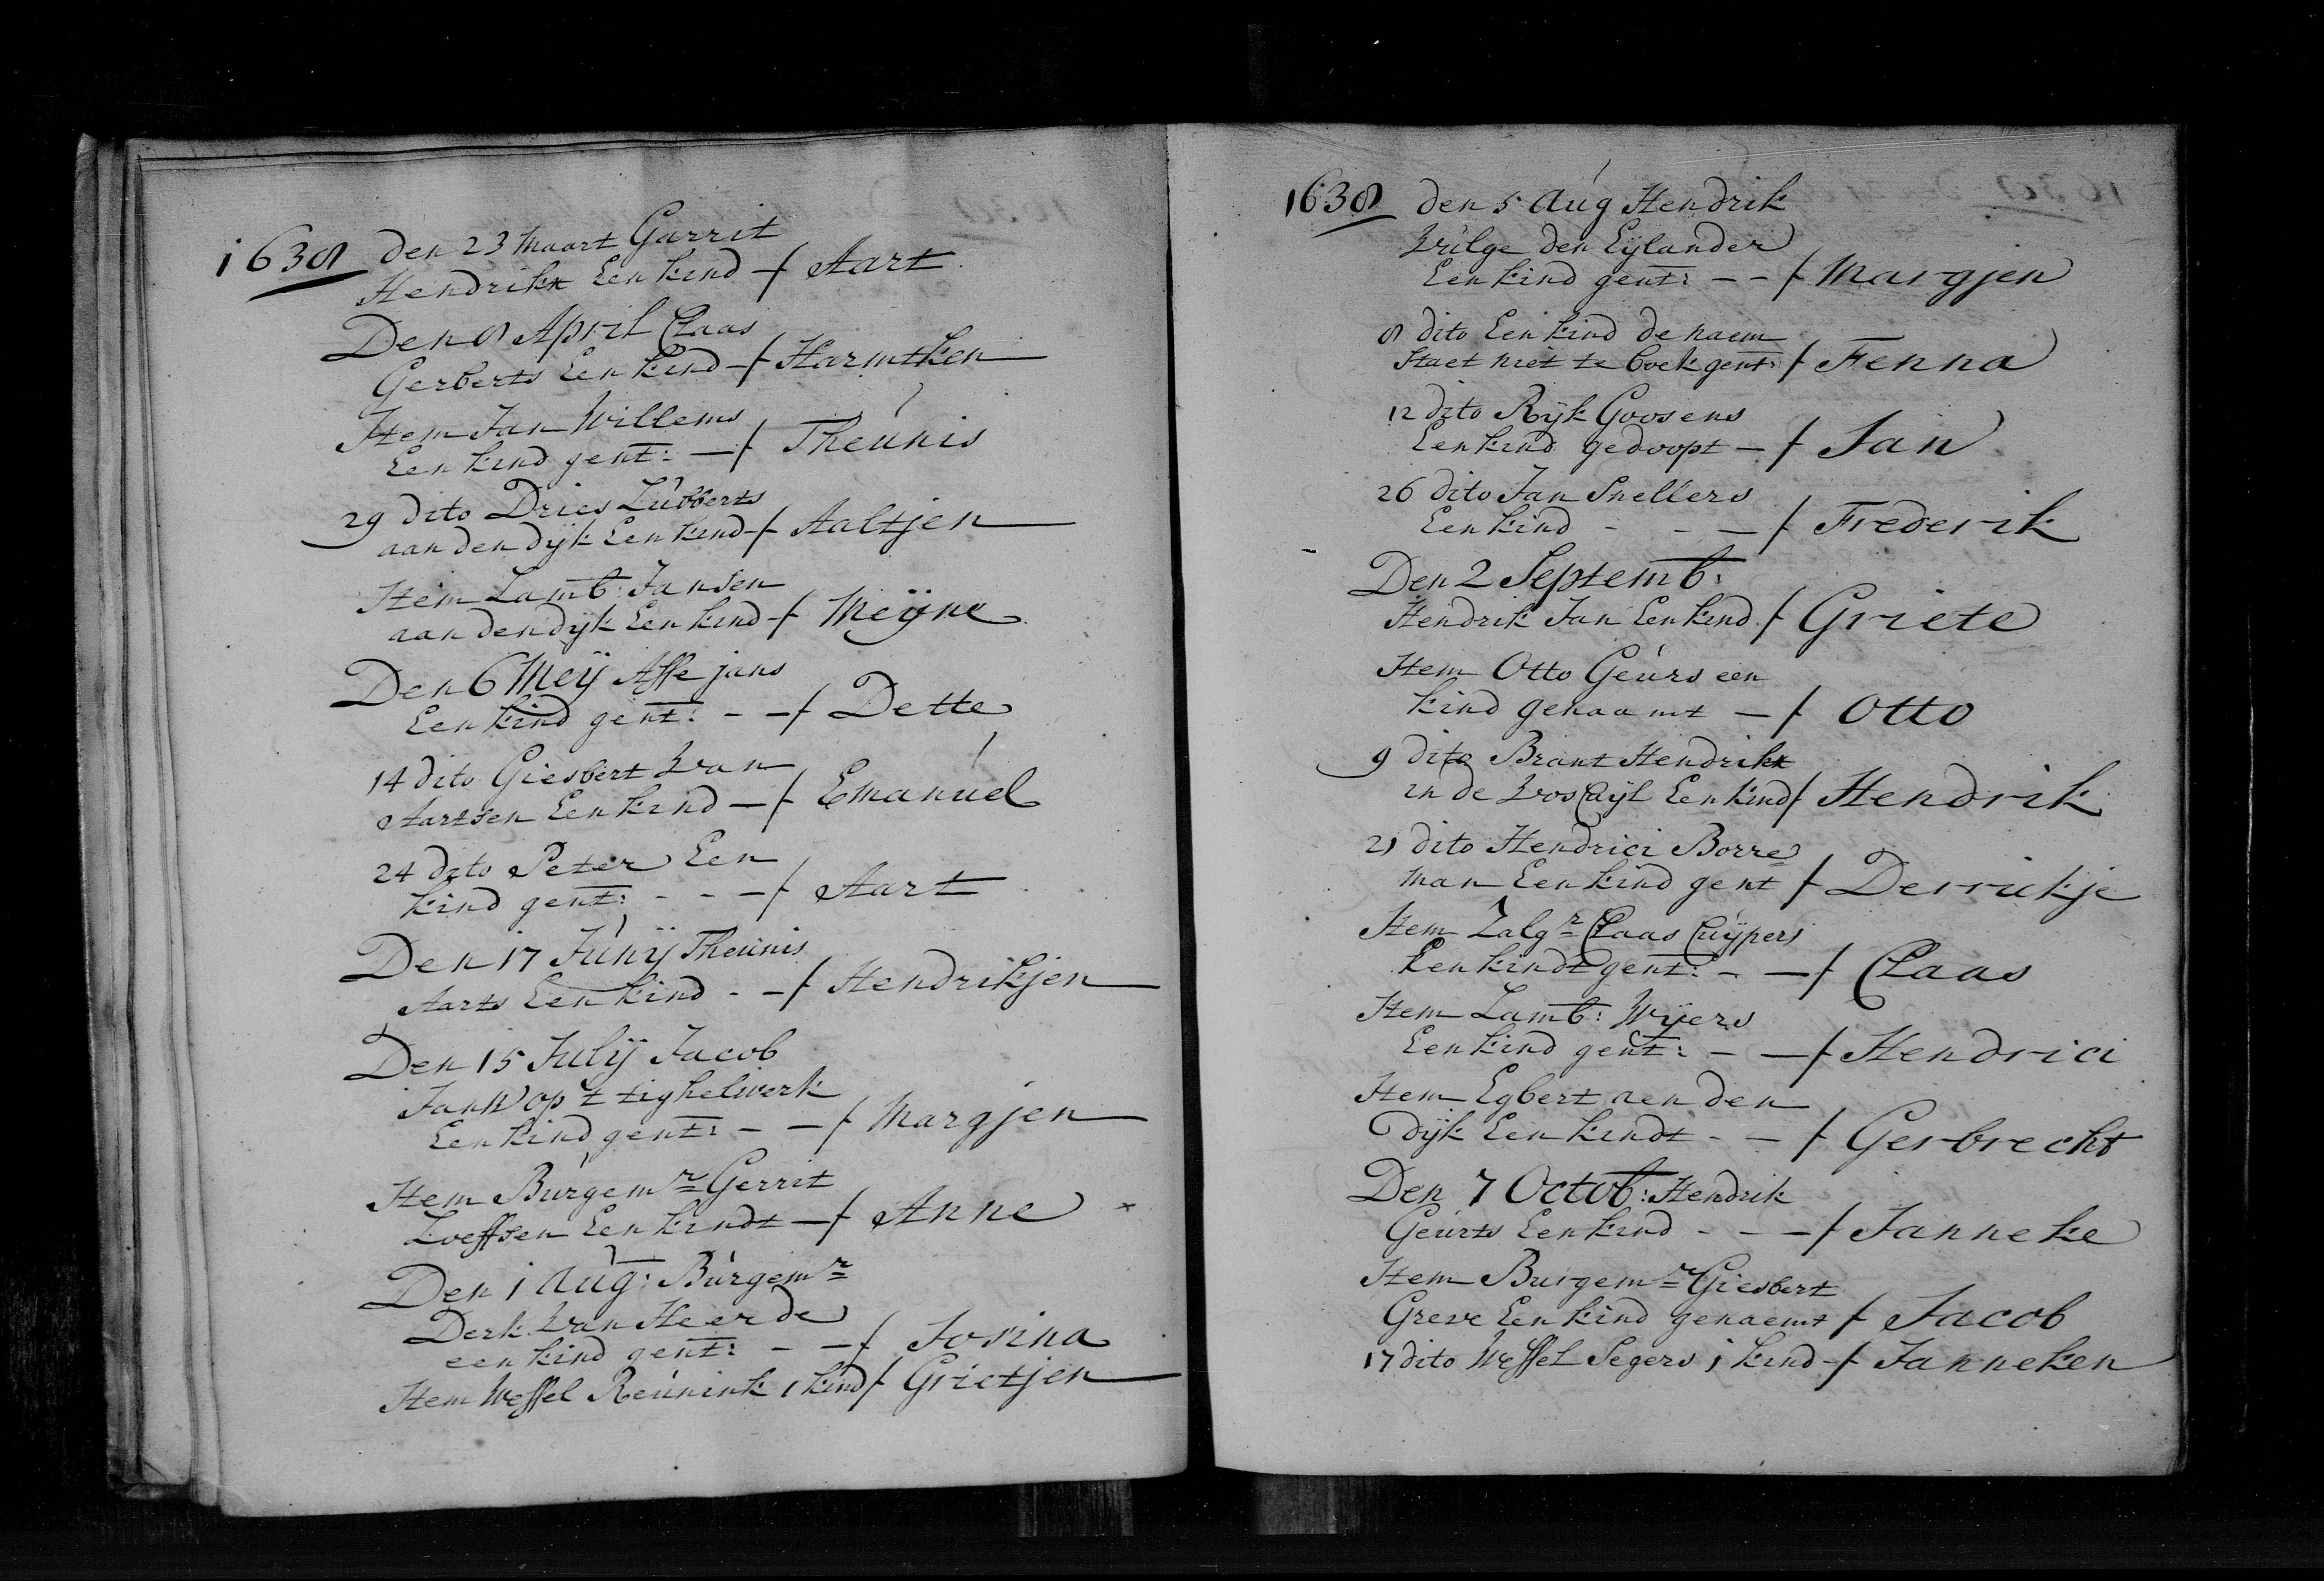 1638 den 23 Maart Garrit
Hendrikx Een kind -f Aart
Den 8 April Claas
Gerberts Een kind -f Harmtken
Item Jan Willems
Een kind gent: -f Theunis
29 dito Dries Lubberts
aan den dÿk Een kind -f Aaltjen
Item Lamb: Jansen
aan den dÿk Een kind -f Meÿne
Den 6 Meÿ Asse jans
Een kind gent: - -f Dette
14 dito Giesbert van
Aartsen Een kind -f Emanuel
24 dito Peter Een
kind gent: - - -f Aart
Den 17 Junÿ Theunis
Aarts Een kind - -f Hendrikjen
Den 15 Julÿ Jacob
Jans op t tighelwerk
Een kind gent: - -f Margjen
Item Burgemr Gerrit
Loeffsen Een kindt -f Anne
Den 1 Aug: Burgemr
Derk van Heerde
een kind gent: - -f Josina
Item Wessel Reunink 1 kind f Grietjen
1638 den 5 Aug Hendrik
den Eÿlander
Een kind gent: - - f Margjen
8 dito Een kind de naem
Staet niet te boek gent: f Fenna
12 dito Rÿk Goosens
Een kind gedoopt - f Jan
26 dito Jan Snellers
Een kind - - - f Frederik
Den 2 Septemb:
Hendrik Jan Een kind f Griete
Item Otto Geurs een
kind genaamt - f Otto
9 dito Brant Hendrikx
in de Een kind f Hendrik
21 dito Hendrici Borre
man Een kind gent f Derrickje
Item Zalgr Claas Cuÿpers
Een kindt gent: - -f Claas
Item Lamb: Wÿers
Een kind gent: - -f Hendrici
Item Egbert aen den
dÿk Een kindt - - f Gerbrecht
Den 7 Octob: Hendrik
Geurts Een kind - - -f Janneke
Item Burgemr Giesbert
Greve Een kind genaemt f Jacob
17 dito Wessel Segers 1 kind -f Janneken